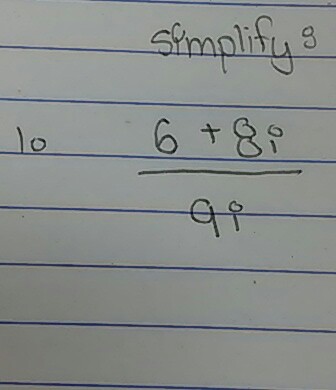 simplify :
10 6 + 8i
9i